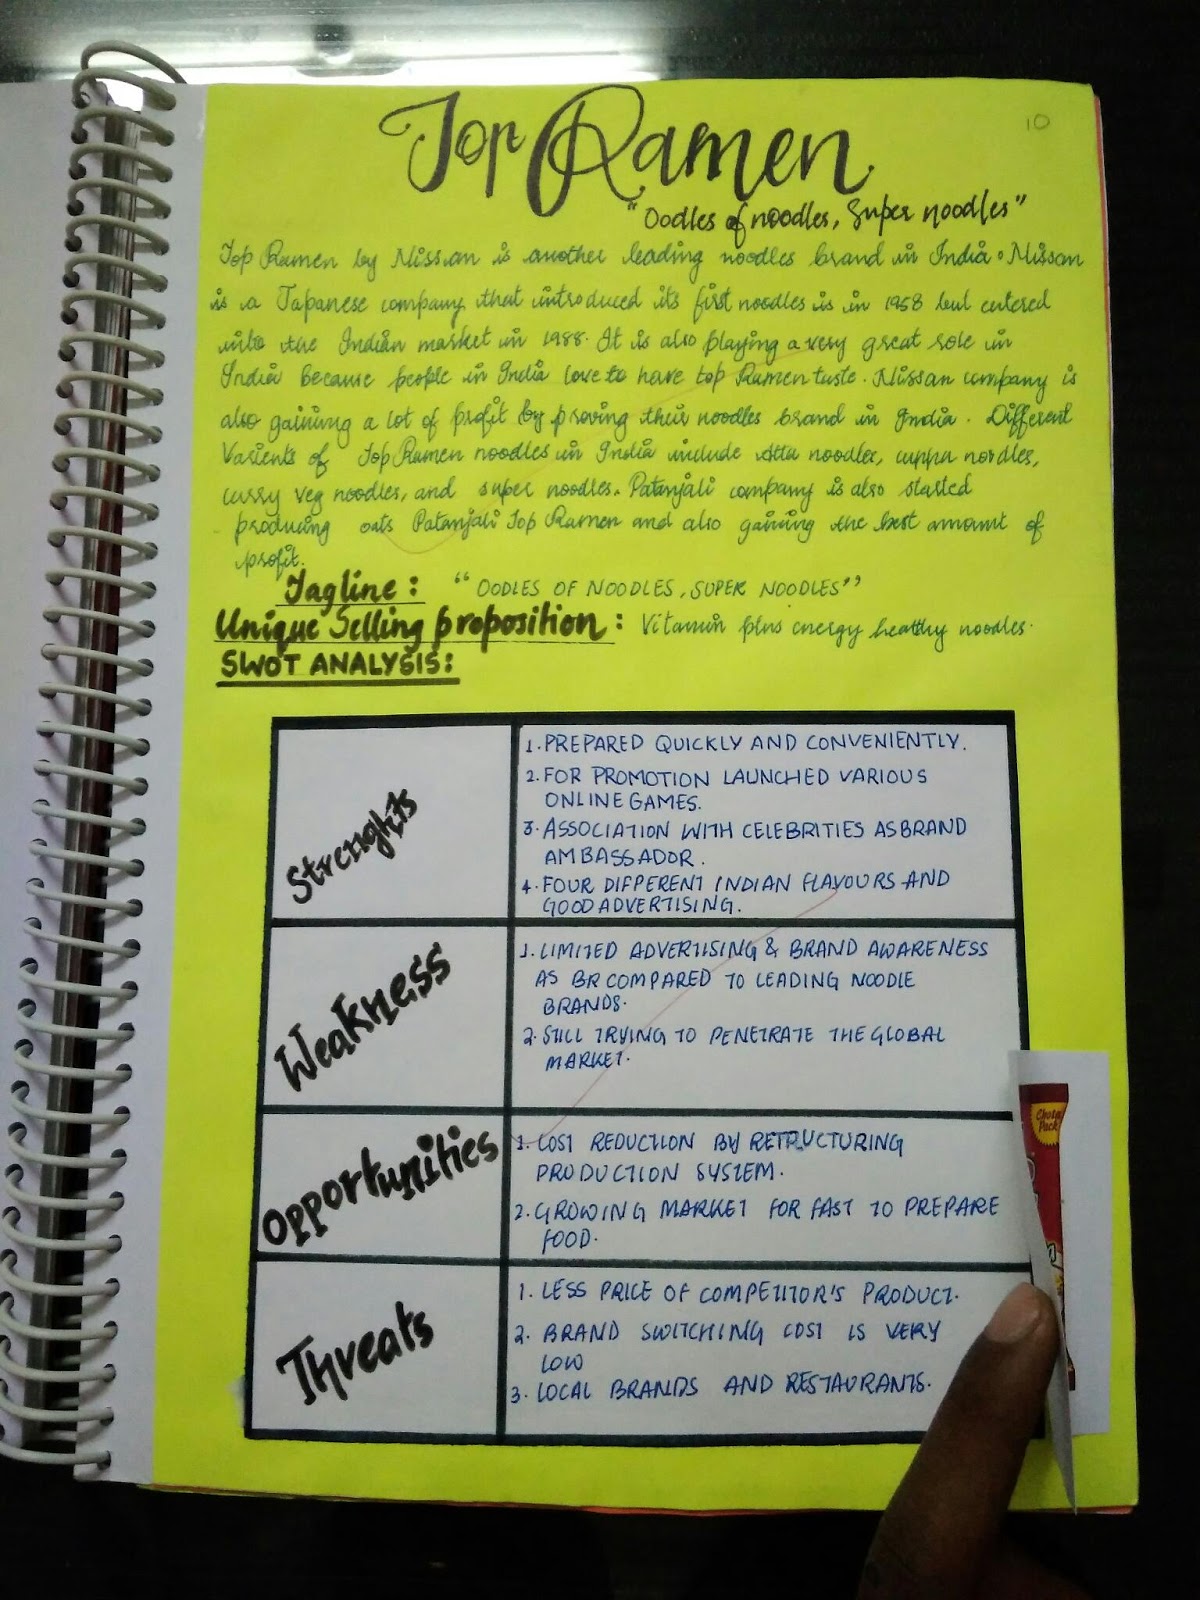 10
Top Ramen
"Oodles of noodles, Super noodles"
Top Ramen by Nissan is another leading noodles brand in India. Nissan
is a Japanese company that introduced its first noodles is in 1958 but entered
into the Indian market in 1988. It is also playing a very great role in
India because people in India love to have top Ramen taste. Nissan company is
also gaining a lot of profit by proving their noodles brand in India. Different
Varients of Top Ramen noodles in India include Atta noodles, cuppa noodles,
curry veg noodles, and super noodles. Patanjali company is also started
producing oats Patanjali Top Ramen and also gaining the best amount of
profit.
Tagline: "OODLES OF NOODLES, SUPER NOODLES"
Unique Selling proposition: Vitamin plus energy healthy noodles.
SWOT ANALYSIS:
Strenghts
1. PREPARED QUICKLY AND CONVENIENTLY.
2. FOR PROMOTION LAUNCHED VARIOUS
ONLINE GAMES.
3. ASSOCIATION WITH CELEBRITIES AS BRAND
AMBASSADOR.
4. FOUR DIFFERENT INDIAN FLAVOURS AND
GOOD ADVERTISING.
Weakness
1. LIMITED ADVERTISING & BRAND AWARENESS
AS BR COMPARED TO LEADING NOODLE
BRANDS.
2. STILL TRYING TO PENETRATE THE GLOBAL
MARKET.
Opportunities
1. COST REDUCTION BY RETRUCTURING
PRODUCTION SYSTEM.
2. GROWING MARKET FOR FAST TO PREPARE
FOOD.
Threats
1. LESS PRICE OF COMPETITOR'S PRODUCT.
2. BRAND SWITCHING COST IS VERY
LOW
3. LOCAL BRANDS AND RESTAURANTS.
Chota
Pack